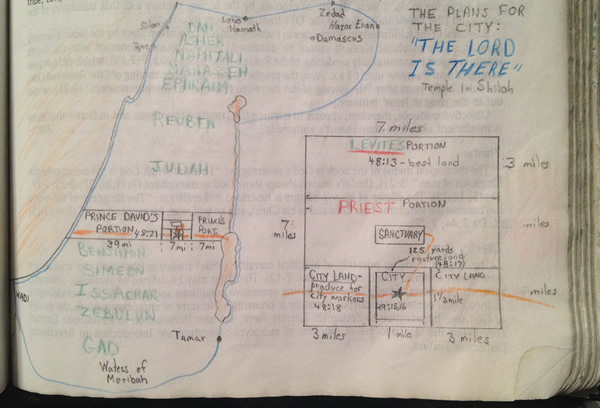 Zedad
Lebo
Hamath
Hazar Enan
Damascus
Sidon
Tyre
DAN
ASHER
NAHTALI
MANASSEH
EPHRAIM
REUBEN
JUDAH
PRINCE DAVID'S
PORTION 48:21
PRINCE'S
PORT.
39 mi
7mi
7mi
BENJAMIN
SIMEON
ISSACHAR
ZEBULUN
GAD
Tamar
Waters of
Meribah
WADI
THE PLANS FOR
THE CITY:
"THE LORD
IS THERE"
Temple in Shiloh
7 miles
LEVITES PORTION
48:13 - best land
3 miles
PRIEST PORTION
7
miles
miles
SANCTUARY
125 yards
pasture land
(48:17)
CITY LAND-
produce for
city workers
48:18
CITY
48:15,16
CITY LAND
1 1/3 mile
miles
3 miles
1 mile
3 miles